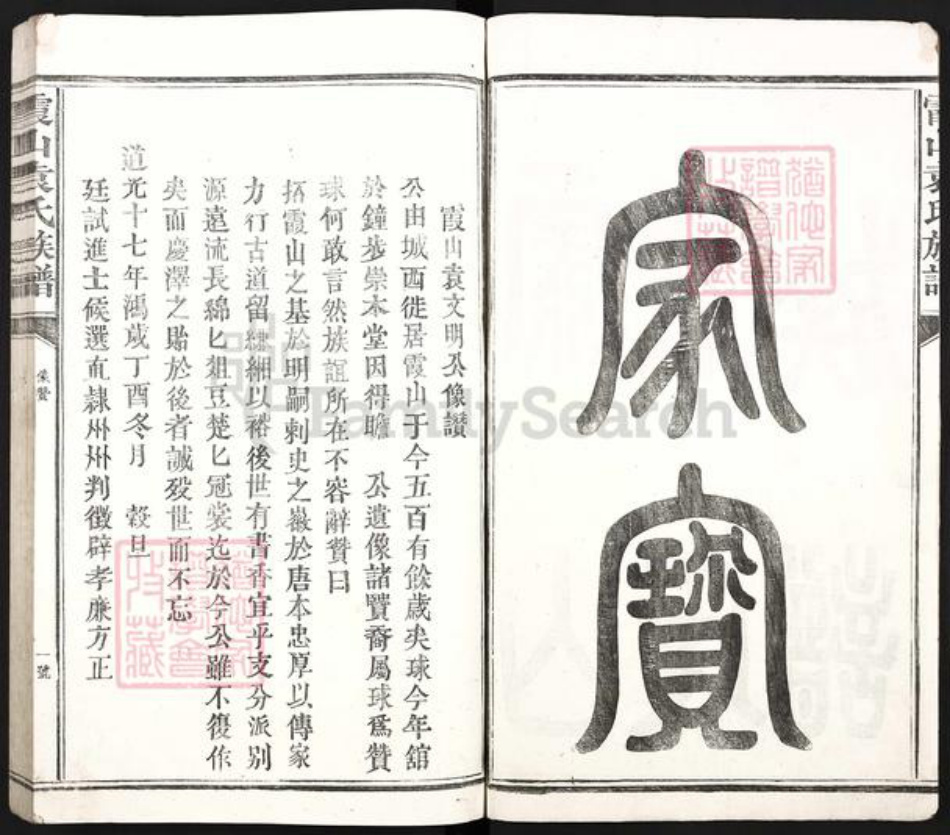 家寶
霞山袁氏族譜
霞山袁文明公像讚
公由城西徙居霞山于今五百有餘歲矣球今年舘
於鐘步崇本堂因得瞻　公遺像諸賢裔屬球爲贊
球何敢言然族誼所在不容辭贊曰
拓霞山之基於明嗣刺史之徽於唐本忠厚以傳家
力行古道留以裕後世有書香宜乎支分派別
源遠流長綿匕俎豆楚匕冠裳迄於今公雖不復作
矣而慶澤之貽於後者誠歿世而不忘
道光十七年鴻歲丁酉冬月　穀旦
廷試進士候選直隷州州判徵辟孝廉方正
霞山袁氏族譜
像贊
一號
FamilySearch